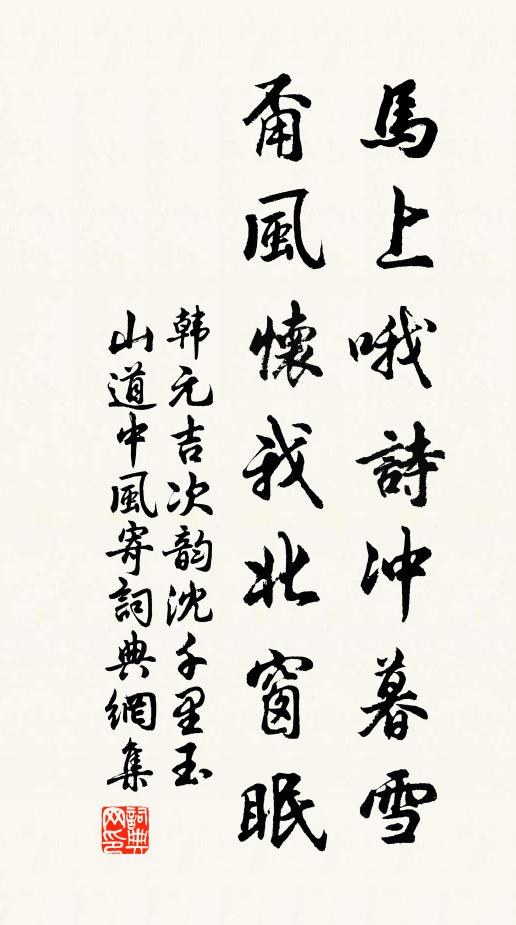 馬上哦詩冲暮雪
甭風懷我北窗眠
韩元吉次韵沈千里玉
山道中風寄詞典網集
詞典网印